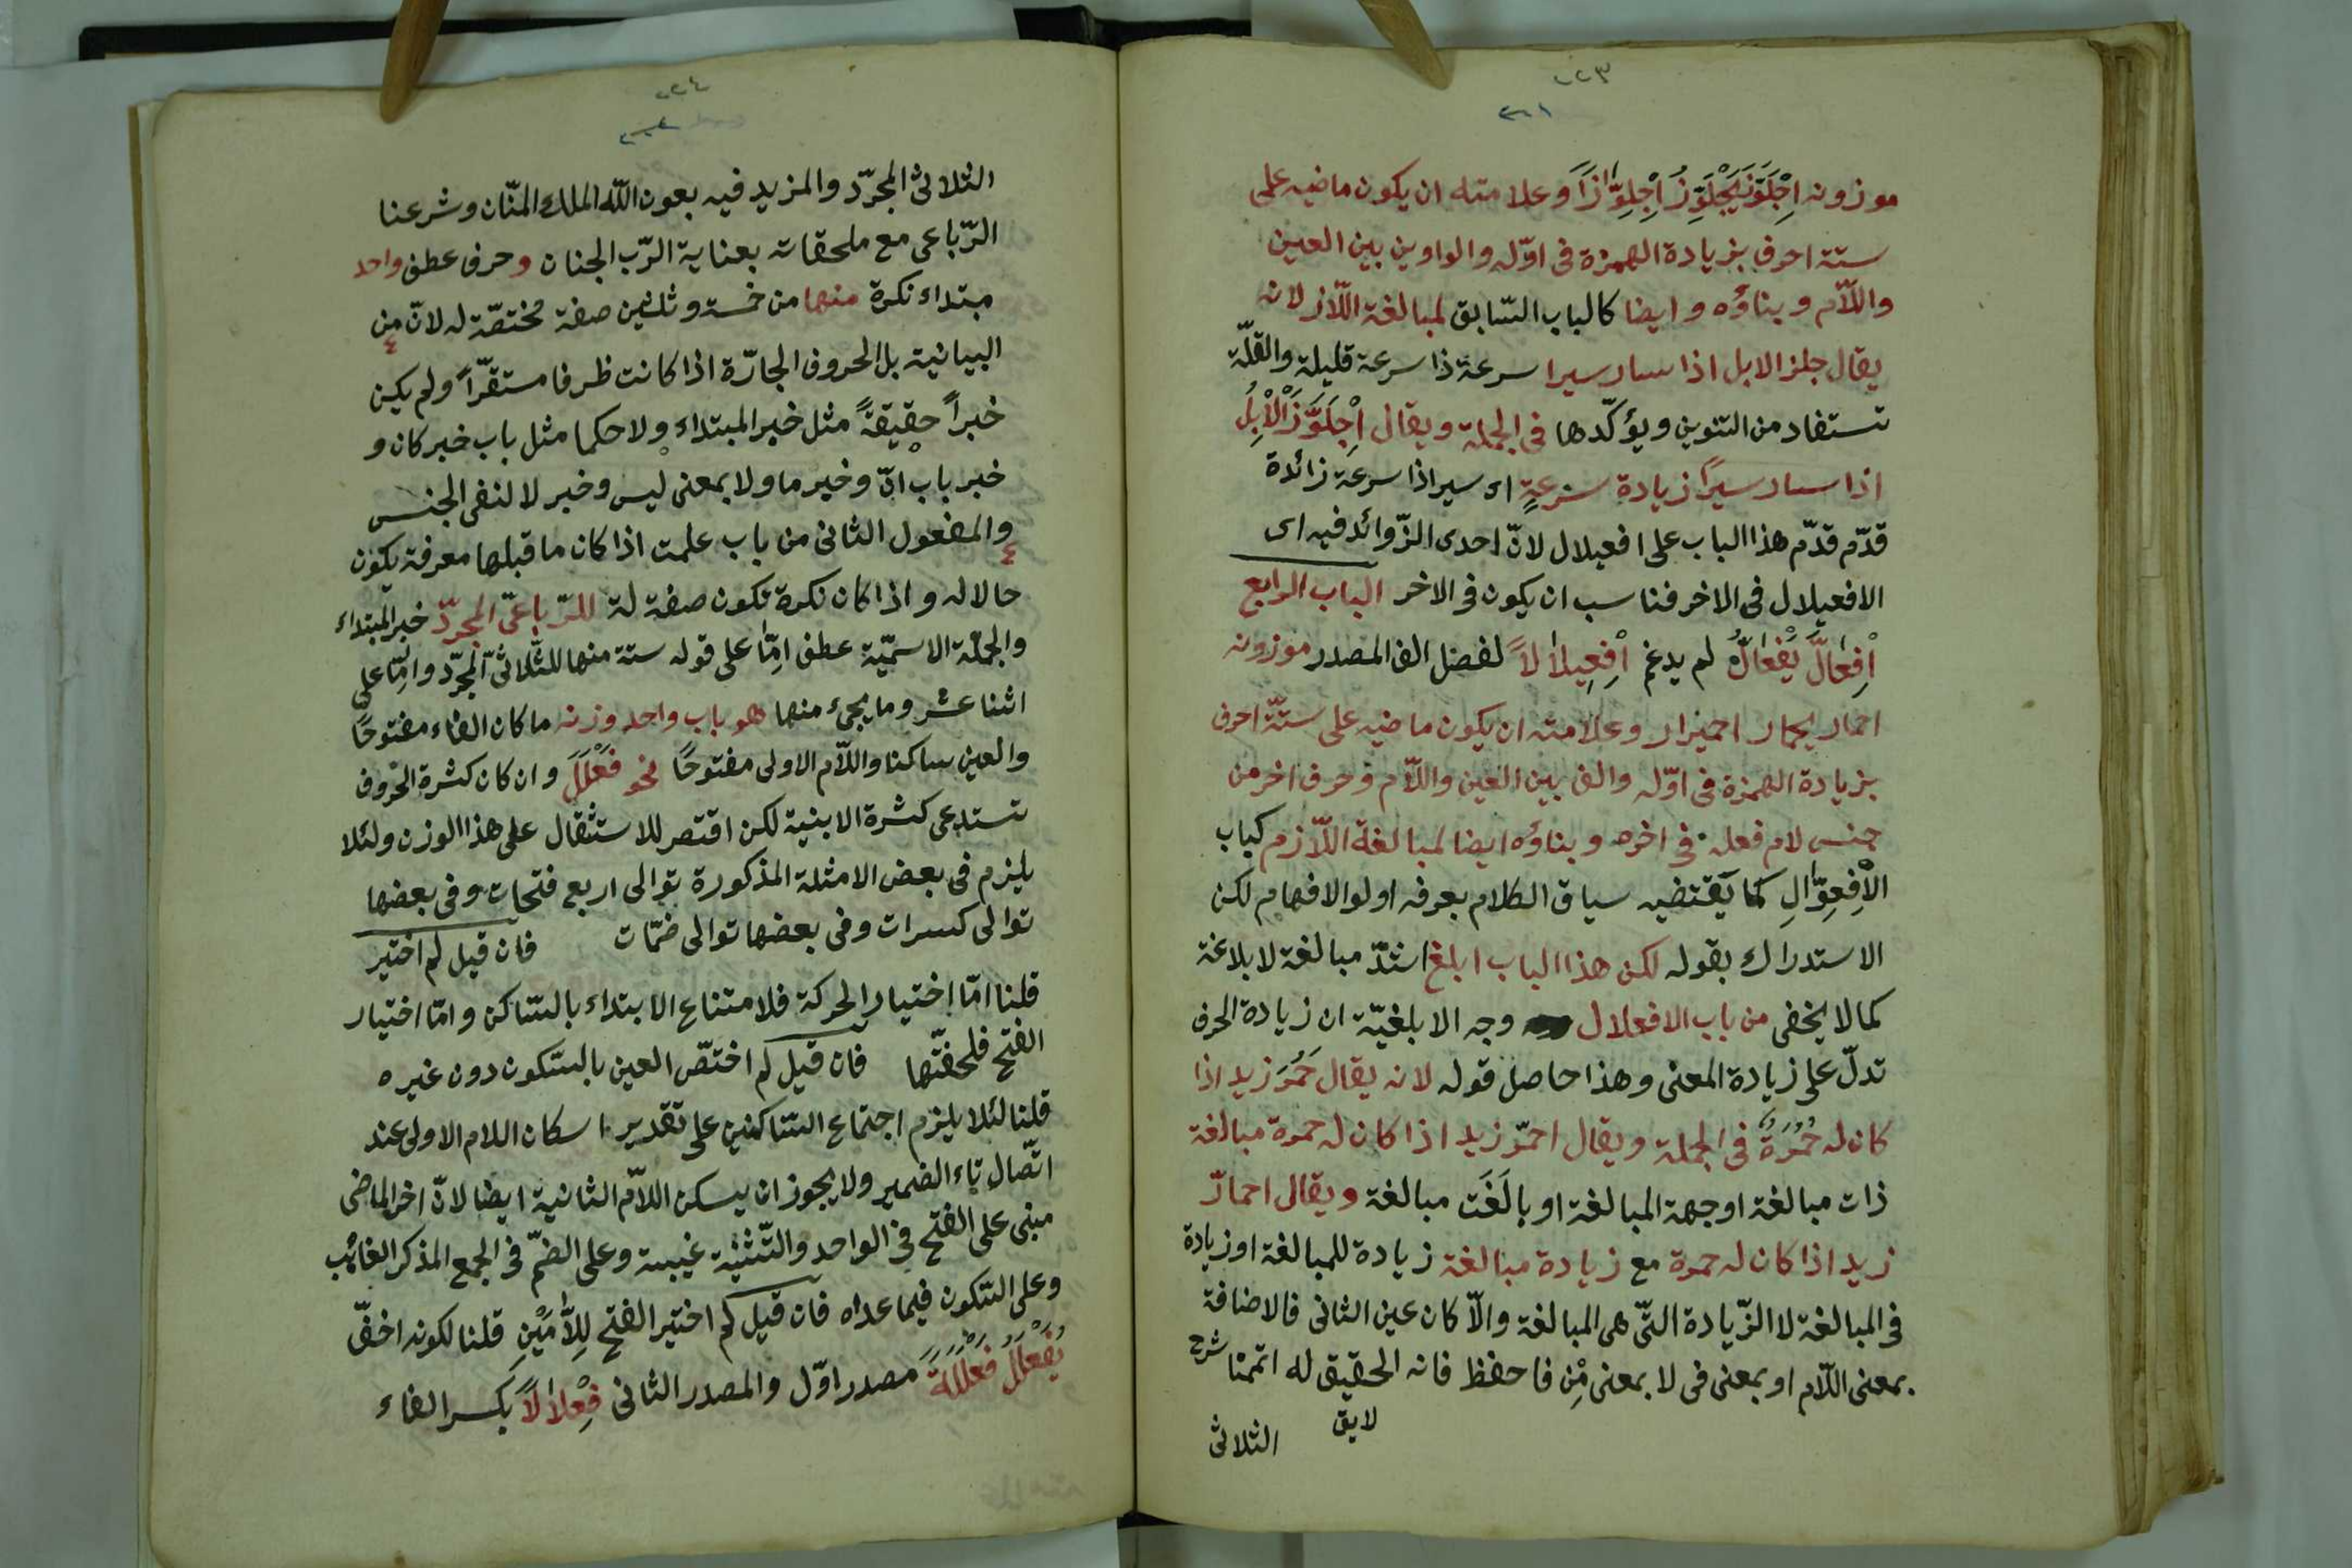 ٢٢٣
٢٢١
موزونه اِجْلَوَّزَ يَجْلَوِّزُ اِجْلِوَّازًا وعلامته ان يكون ماضيه على
ستة احرف بزيادة الهمزة فى اوّله والواوين بين العين
واللّام وبناؤه وايضا كالباب السّابق لمبالغة اللّاز لانه
يقال جلز الابل اذا سار سيرا سرعة ذا سرعة قليلة والقلّة
تستفاد من التنوين ويؤكّدها فى الجملة ويقال اِجْلَوَّزَ الْاِبِلُ
اذا سار سيرًا زيادة سرعةٍ اى سيرا ذا سرعة زائدة
قدّم قدّم هذا الباب على افعيلال لانّ احدى الزّوائد فيه اى
الافعيلال فى الاخر فناسب ان يكون فى الاخر الباب الرابع
اِفْعَالَّ يَفْعَالُّ لم يدغم اِفْعِيلَالًا لفصل الف المصدر موزونه
احمار يحمار احميرار وعلامته ان يكون ماضيه على ستّة احرف
بزيادة الهمزة فى اوّله والف بين العين واللّام وحرف اخر من
جنس لام فعله فى اخره وبناؤه ايضا لمبالغة اللّازم كباب
الْاِفْعِوَّالِ كما يَقتضيه سياق الكلام يعرفه اولوا الافهام لكن
الاستدراك بقوله لكن هذا الباب ابلغ اشدّ مبالغة لا بلاغة
كما لا يخفى من باب الافعلال وجه الابلغيّة ان زيادة الحرف
تدلّ على زيادة المعنى وهذا حاصل قوله لانه يقال حَمُرَ زيد اذا
كان له حُمْرَةٌ فى الجملة ويقال احمرّ زيد اذا كان له حمرة مبالغة
ذات مبالغة اوجهة المبالغة او بالَغَت مبالغة ويقال احمارّ
زيد اذا كان له حمرة مع زيادة مبالغة زيادة للمبالغة او زيادة
فى المبالغة لا الزّيادة التّى هى المبالغة والّا كان عين الثانى فالاضافة
بمعنى اللّام او بمعنى فى لا بمعنى مِنْ فاحفظ فانه الحقيق له اتممنا شرح
لايق
الثلاثى
٢٢٤
الثلاثى المجرّد والمزيد فيه بعون اللّه الملك المنّان وشرعنا
الرّباعى مع ملحقاته بعناية الرّب الجنان وحرف عطف واحد
مبتداء نكرة منها من خمسة وثلثين صفة مختصّة له لانّ من
البيانية بل الحروف الجارّة اذا كانت ظرفا مستقرّاً ولم يكن
خبراً حقيقةً مثل خبر المبتداء ولا حكما مثل باب خبر كان و
خبر باب انّ وخبر ما ولا بمعنى ليس وخبر لا لنفى الجنس
والمفعول الثانى من باب علمت اذا كان ما قبلها معرفة يكون
حالا له واذا كان نكرة تكون صفة له للرّباعىّ المجرّد خبر المبتداء
والجملة الاسميّة عطف امّا على قوله ستة منها للثّلاثىّ المجرّد وامّا على
اثنا عشر وما يجىء منها هو باب واحد وزنه ما كان الفاء مفتوحًا
والعين ساكنا واللّام الاولى مفتوحًا نحو فَعْلَلَ وان كان كثرة الحروف
تستدعى كثرة الابنية لكن اقتصر للاستثقال على هذا الوزن ولئلا
يلزم فى بعض الامثلة المذكورة توالى اربع فتحات وفى بعضها
توالى كسرات وفى بعضها توالى ضمّات فان قيل لم اختير
قلنا امّا اختيار الحركة فلامتناع الابتداء بالسّاكن وامّا اختيار
الفتح فلخفّتها فان قيل لم اختصّ العين بالسّكون دون غيره
قلنا لئلا يلزم اجتماع السّاكنين على تقدير اسكان اللام الاولى عند
اتّصال تاء الضمير ولا يجوز ان يسكن اللاّم الثانية ايضا لانّ اخر الماضى
مبنى على الفتح فى الواحد والتّثنية غيبة وعلى الضمّ فى الجمع المذكر الغائب
وعلى السّكون فيما عداه فان قيل لم اختير الفتح لِلاَّمَيْنِ قلنا لكونه اخفّ
يُفَعْلِلُ فَعْلَلَةً مصدر اوّل والمصدر الثانى فِعْلَالًا بكسر الفاء